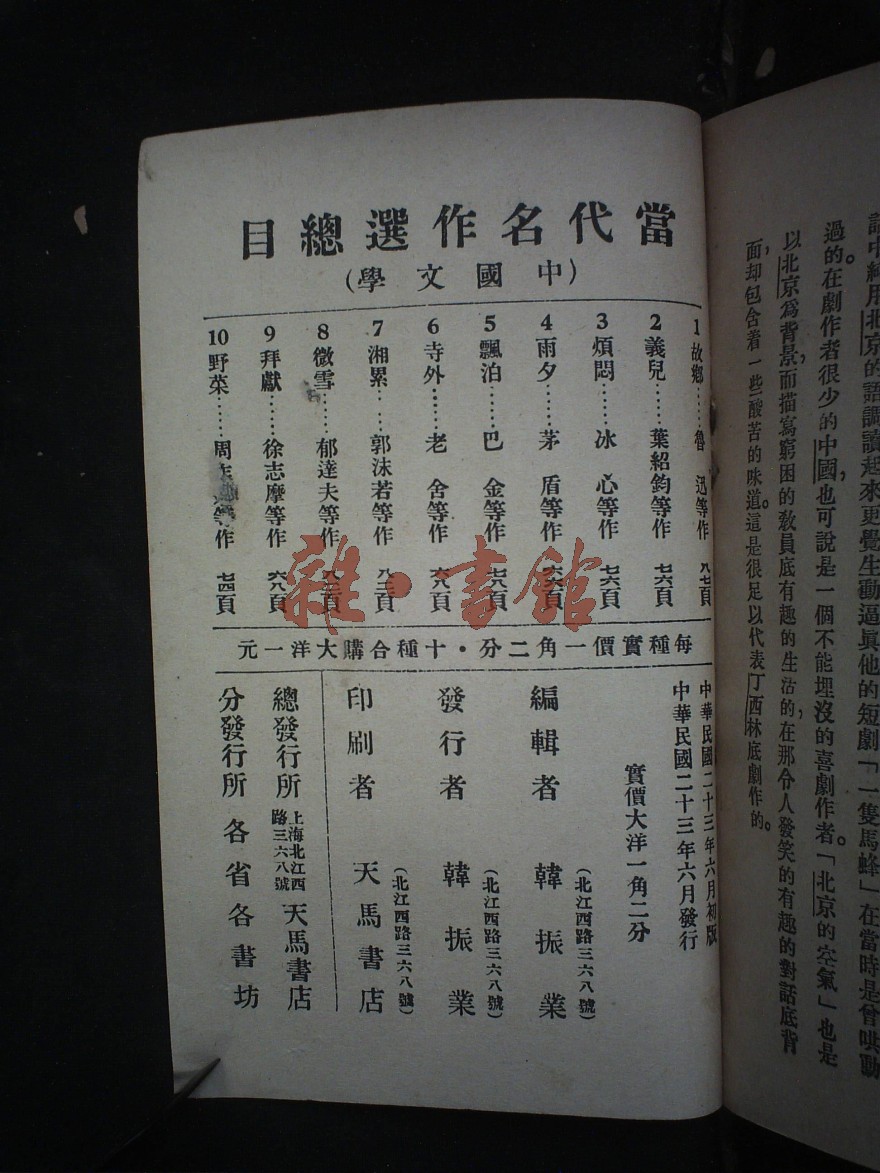 話中純用北京的語調讀起來更覺生動逼眞他的短劇「一隻馬蜂」在當時是曾哄動
過的。在劇作者很少的中國，也可說是一個不能埋沒的喜劇作者。「北京的空氣」也是
以北京爲背景，而描寫窮困的敎員底有趣的生活的，在那令人發笑的有趣的對話底背
面，却包含着一些酸苦的味道。這是很足以代表丁西林底劇作的。
當代名作選總目
（中國文學）
1 故鄉……魯 迅等作 頁
2 義兒……葉紹鈞等作 七六頁
3 煩悶……冰 心等作 七六頁
4 雨夕……茅 盾等作 六六頁
5 飄泊……巴 金等作 七六頁
6 寺外……老 舍等作 六八頁
7 湘累……郭沫若等作 八三頁
8 微雪……郁達夫等作 頁
9 拜獻……徐志摩等作 六八頁
10 野菜……周作 等作 七四頁
每種實價一角二分·十種合購大洋一元
中華民國二十三年六月初版
中華民國二十三年六月發行
實價大洋一角二分
編輯者 韓振業
（北江西路三六八號）
發行者 韓振業
（北江西路三六八號）
印刷者 天馬書店
（北江西路三六八號）
總發行所 上海北江西路三六八號 天馬書店
分發行所 各省各書坊
雜·書館